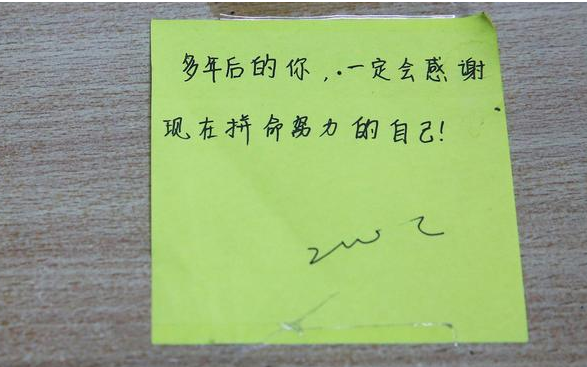 多年后的你,.一定会感谢
现在拼命努力的自己!